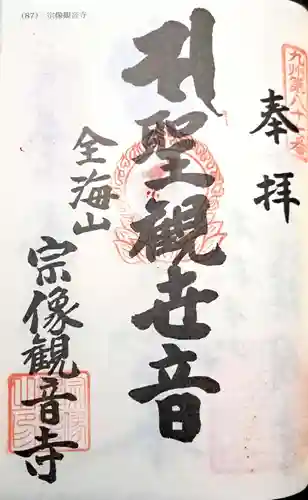 (87) 宗像観音寺
九州第八十七番
奉拝
聖観世音
全海山
宗像観音寺